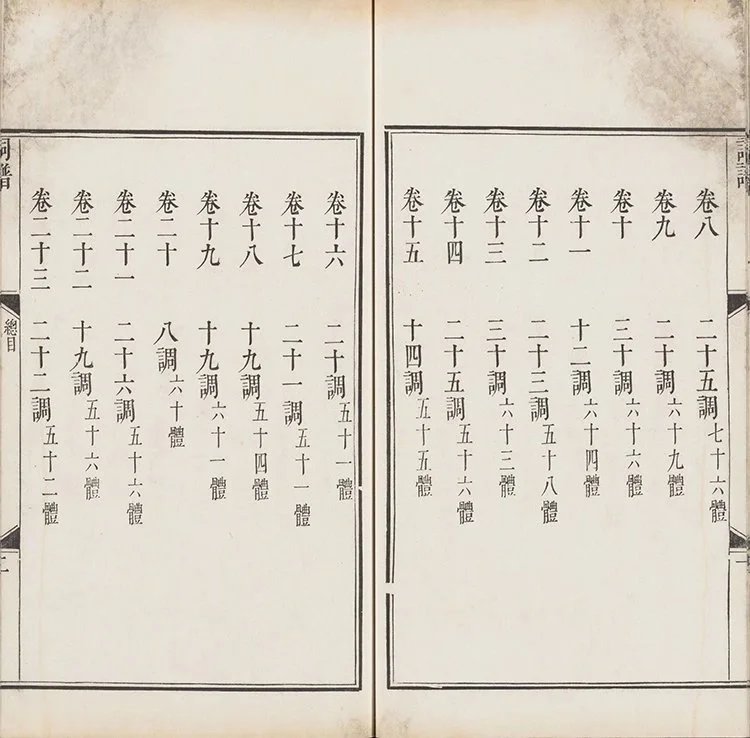 詞譜
卷八 二十五調 七十六體
卷九 二十調 六十九體
卷十 三十調 六十六體
卷十一 十二調 六十四體
卷十二 二十三調 五十八體
卷十三 三十調 六十三體
卷十四 二十五調 五十六體
卷十五 十四調 五十五體
卷十六 二十調 五十一體
卷十七 二十一調 五十一體
卷十八 十九調 五十四體
卷十九 十九調 六十一體
卷二十 八調 六十體
卷二十一 二十六調 五十六體
卷二十二 十九調 五十六體
卷二十三 二十二調 五十二體
詞譜
總目
二